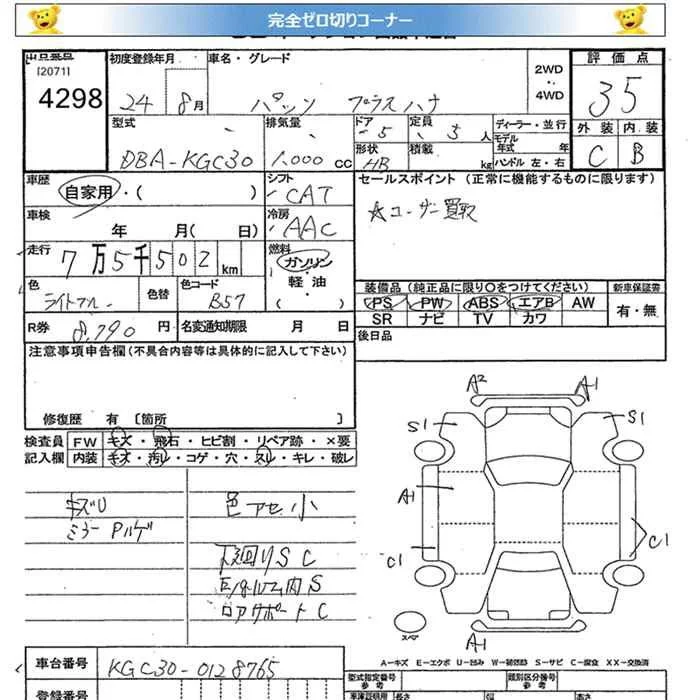 完全ゼロ切りコーナー
出品番号 初度登録年月 車名・グレード 評価点
[2071]
4298 24 8月 パッソ プラスハナ 2WD 4WD 35
型式 排気量 ドア 定員 ディーラー・並行 外装 内装
DBA-KGC30 1,000cc 5 5人 モデル年式 年 C B
形状 HB 積載 kg ハンドル 左・右
車歴 自家用・( ) シフト CAT セールスポイント (正常に機能するものに限ります)
車検 年 月( 日) 冷房 AAC ☆ユーザー買取
走行 7万5千502km 燃料 ガソリン・軽油・( )
色 ライトブルー 色替 色コード B57
装備品 (純正品に限り○をつけてください) 新車保証書
PS PW ABS エアB AW 有・無
SR ナビ TV カワ
R券 8,790円 名変通知期限 月 日
後日品
注意事項申告欄 (不具合内容等は具体的に記入して下さい)
修復歴 有 [箇所 ]
検査員 FW キズ・飛石・ヒビ割・リペア跡・×要
記入欄 内装 キズ・汚レ・コゲ・穴・スレ・キレ・破レ
キズU 色アセ小
ミラーPハゲ
下廻りS C
エンジンルーム内S
コアサポートC
A2 A1
S1 S1
A1
C1 C1
スペア A1
A-キズ E-エクボ U-凹み W-補修跡 S-サビ C-腐食 XX-交換済
車台番号 KGC30-0128765 型式指定番号 参考 類別区分番号 参考
登録番号 車庫証明用 長さ 幅 高さ